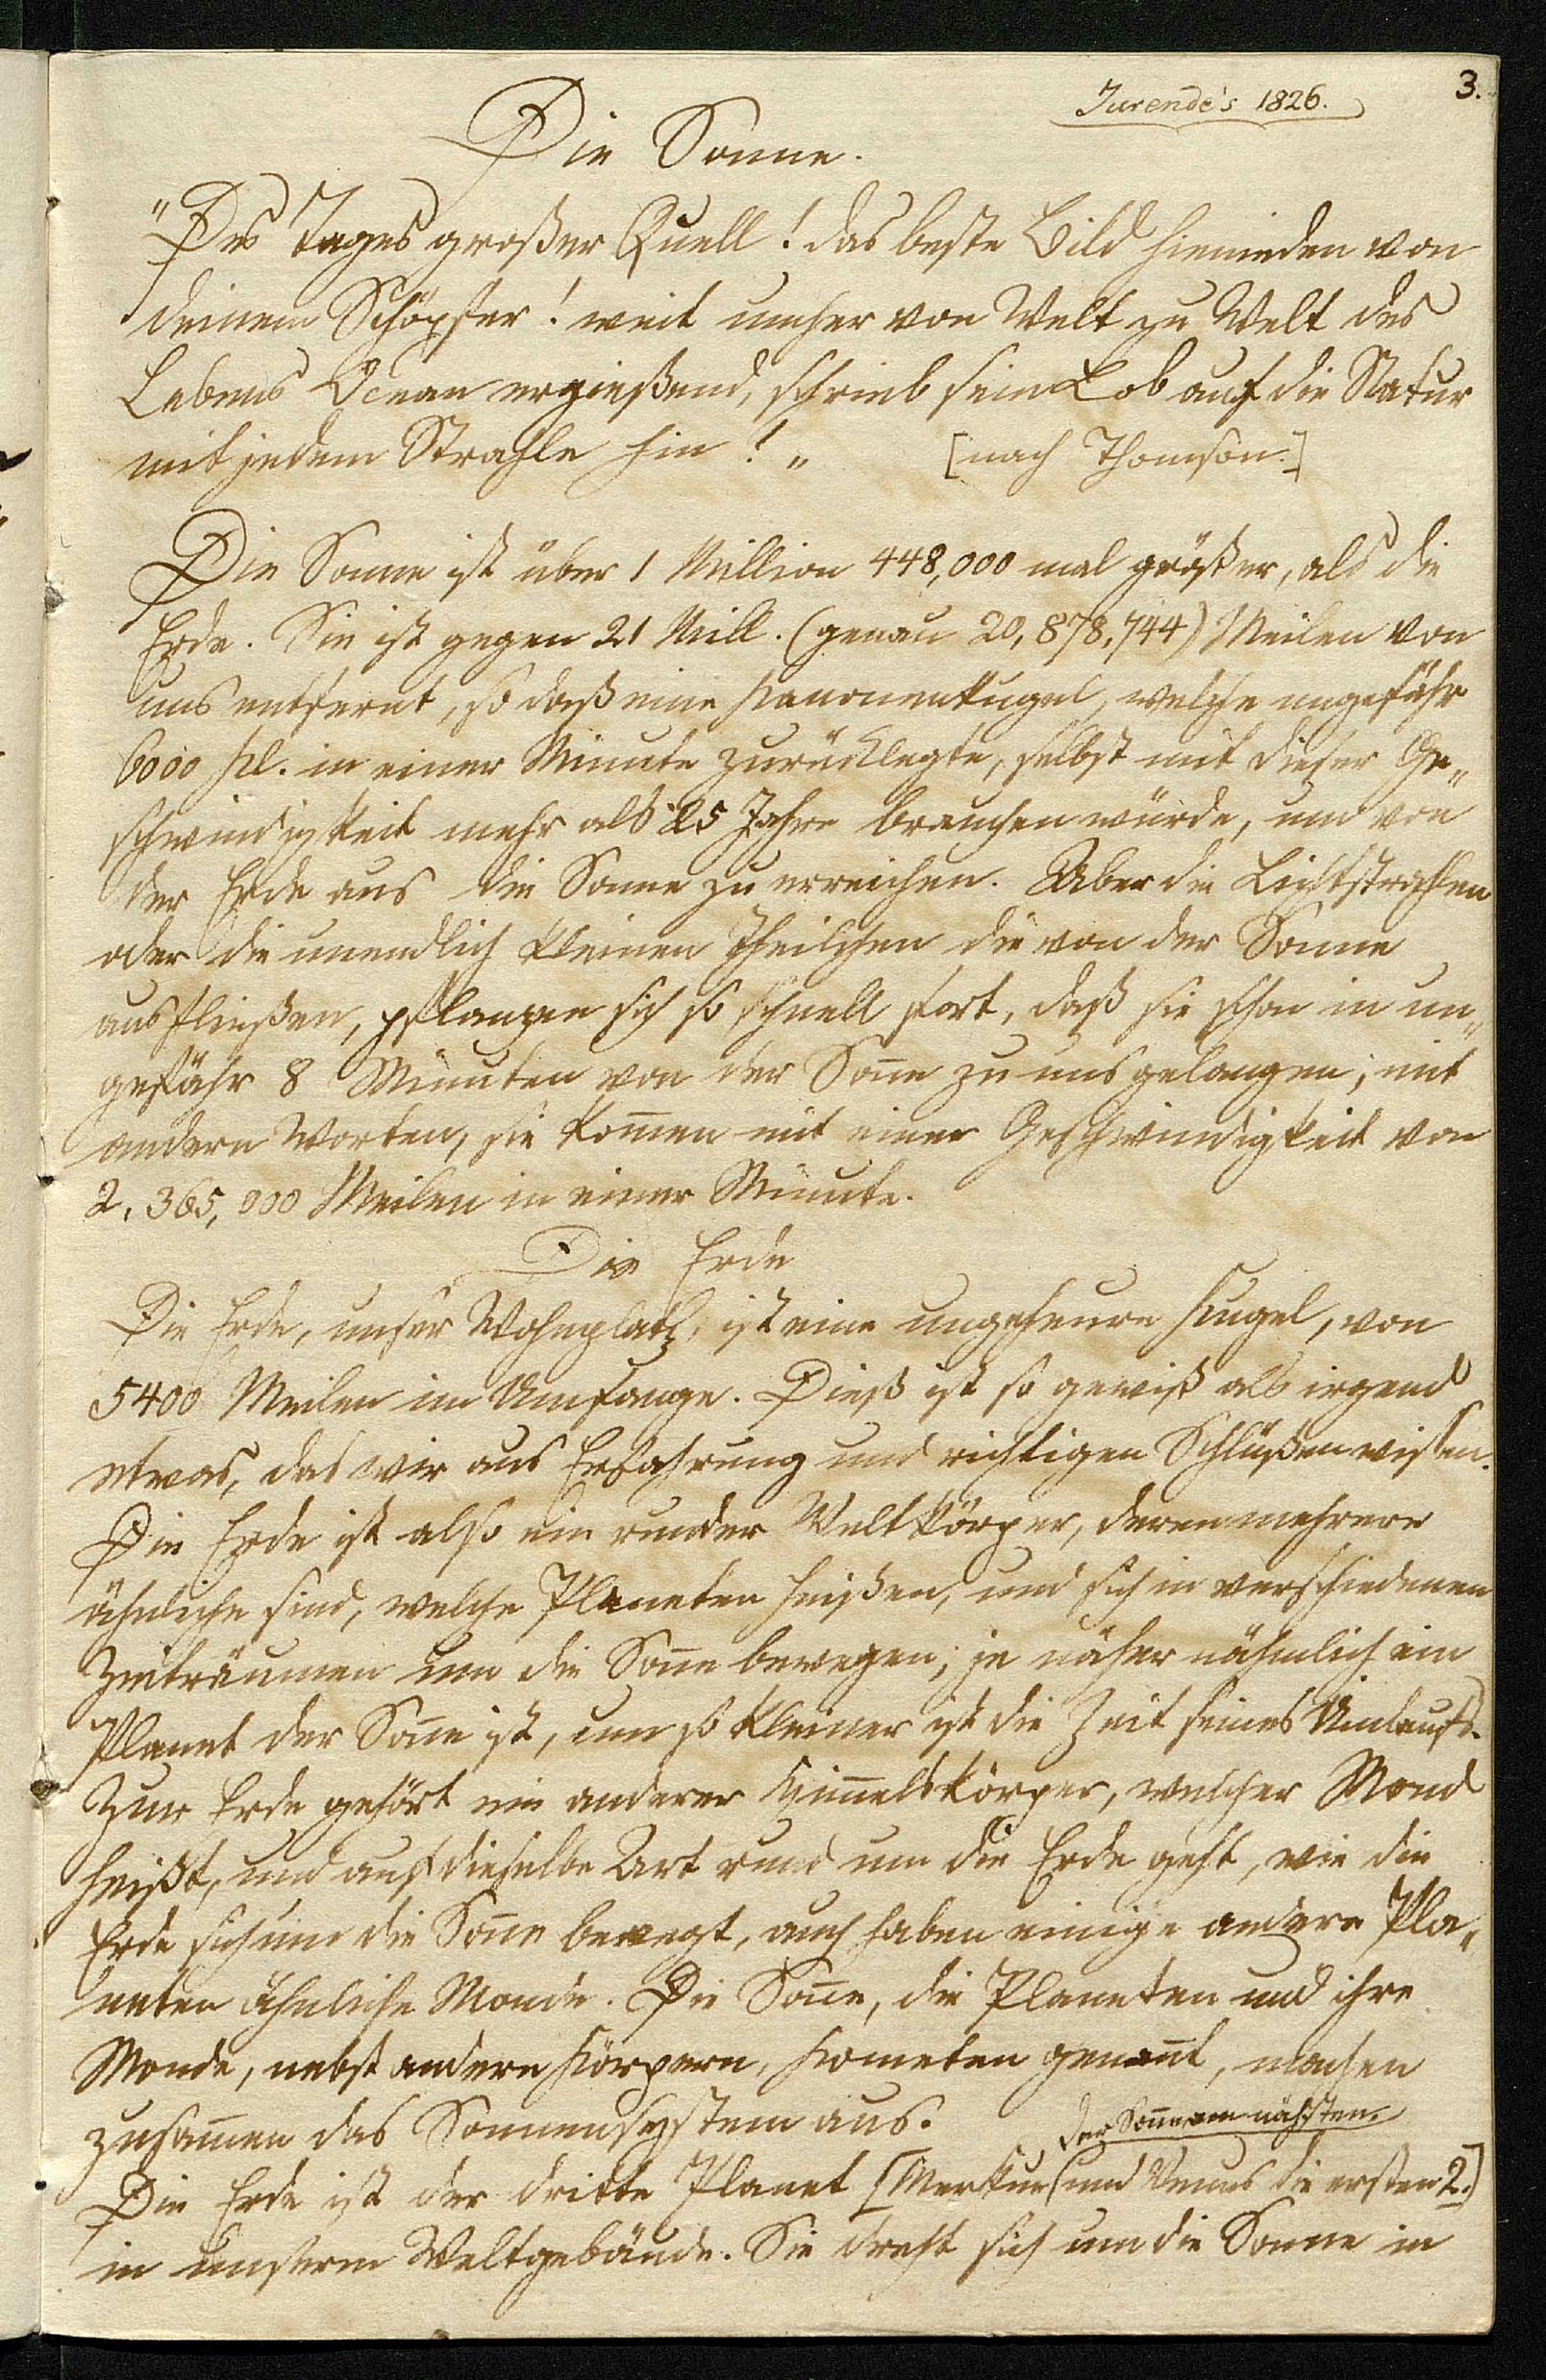 3.
Jurende's 1826.
Die Soñne.
"Des Tages großer Quell! das beste Bild hienieden von
deinem Schöpfer! weit umher von Welt zu Welt des
Lebens Ocean ergießend, schrieb sein Lob auf die Natur
mit jedem Strahle hin! „ [nach Thomson.]
Die Sonne ist über 1 Million 448,000 mal größer, als die
Erde. Sie ist gegen 21 Mill. (genau 20,878,744) Meilen von
uns entfernt, so daß eine Kanonenkugel, welche ungefähr
6000 Kl. in einer Minute zurücklegte, selbst mit dieser Ge„
schwindigkeit mehr als 25 Jahre brauchen würde, um von
der Erde aus die Sonne zu erreichen. Aber die Lichtstrahlen
oder die unendlich kleinen Theilchen die von der Sonne
ausfließen, pflanzen sich so schnell fort, daß sie schon in un„
gefähr 8 Minuten von der Soñe zu uns gelangen; mit
andern Worten, sie kom̄en mit einer Geschwindigkeit von
2,365,000 Meilen in einer Minute.
Die Erde
Die Erde, unser Wohnplatz, ist eine ungeheure Kugel, von
5400 Meilen im Umfange. Dieß ist so gewiß als irgend
etwas, das wir aus Erfahrung und richtigen Schlüßen wissen.
Die Erde ist also ein runder Weltkörper, deren mehrere
ähnliche sind, welche Planeten heißen, und sich in verschiedenen
Zeiträumen um die Soñe bewegen; je näher nähmlich ein
Planet der Soñe ist, um so kleiner ist die Zeit seines Umlaufs.
Zur Erde gehört ein anderer Him̄elskörper, welcher Mond
heißt, und auf dieselbe Art rund um die Erde geht, wie die
Erde sich um die Soñe bewegt, auch haben einige andere Pla„
neten ähnliche Monde. Die Soñe, die Planeten und ihre
Monde, nebst andern Körpern, Kometen genañt, machen
zusam̄en das Sonnensystem aus.
der Soñe am nächsten.
Die Erde ist der dritte Planet [Merkur und Venus die ersten 2.]
in unserm Weltgebäude. Sie dreht sich um die Sonne in